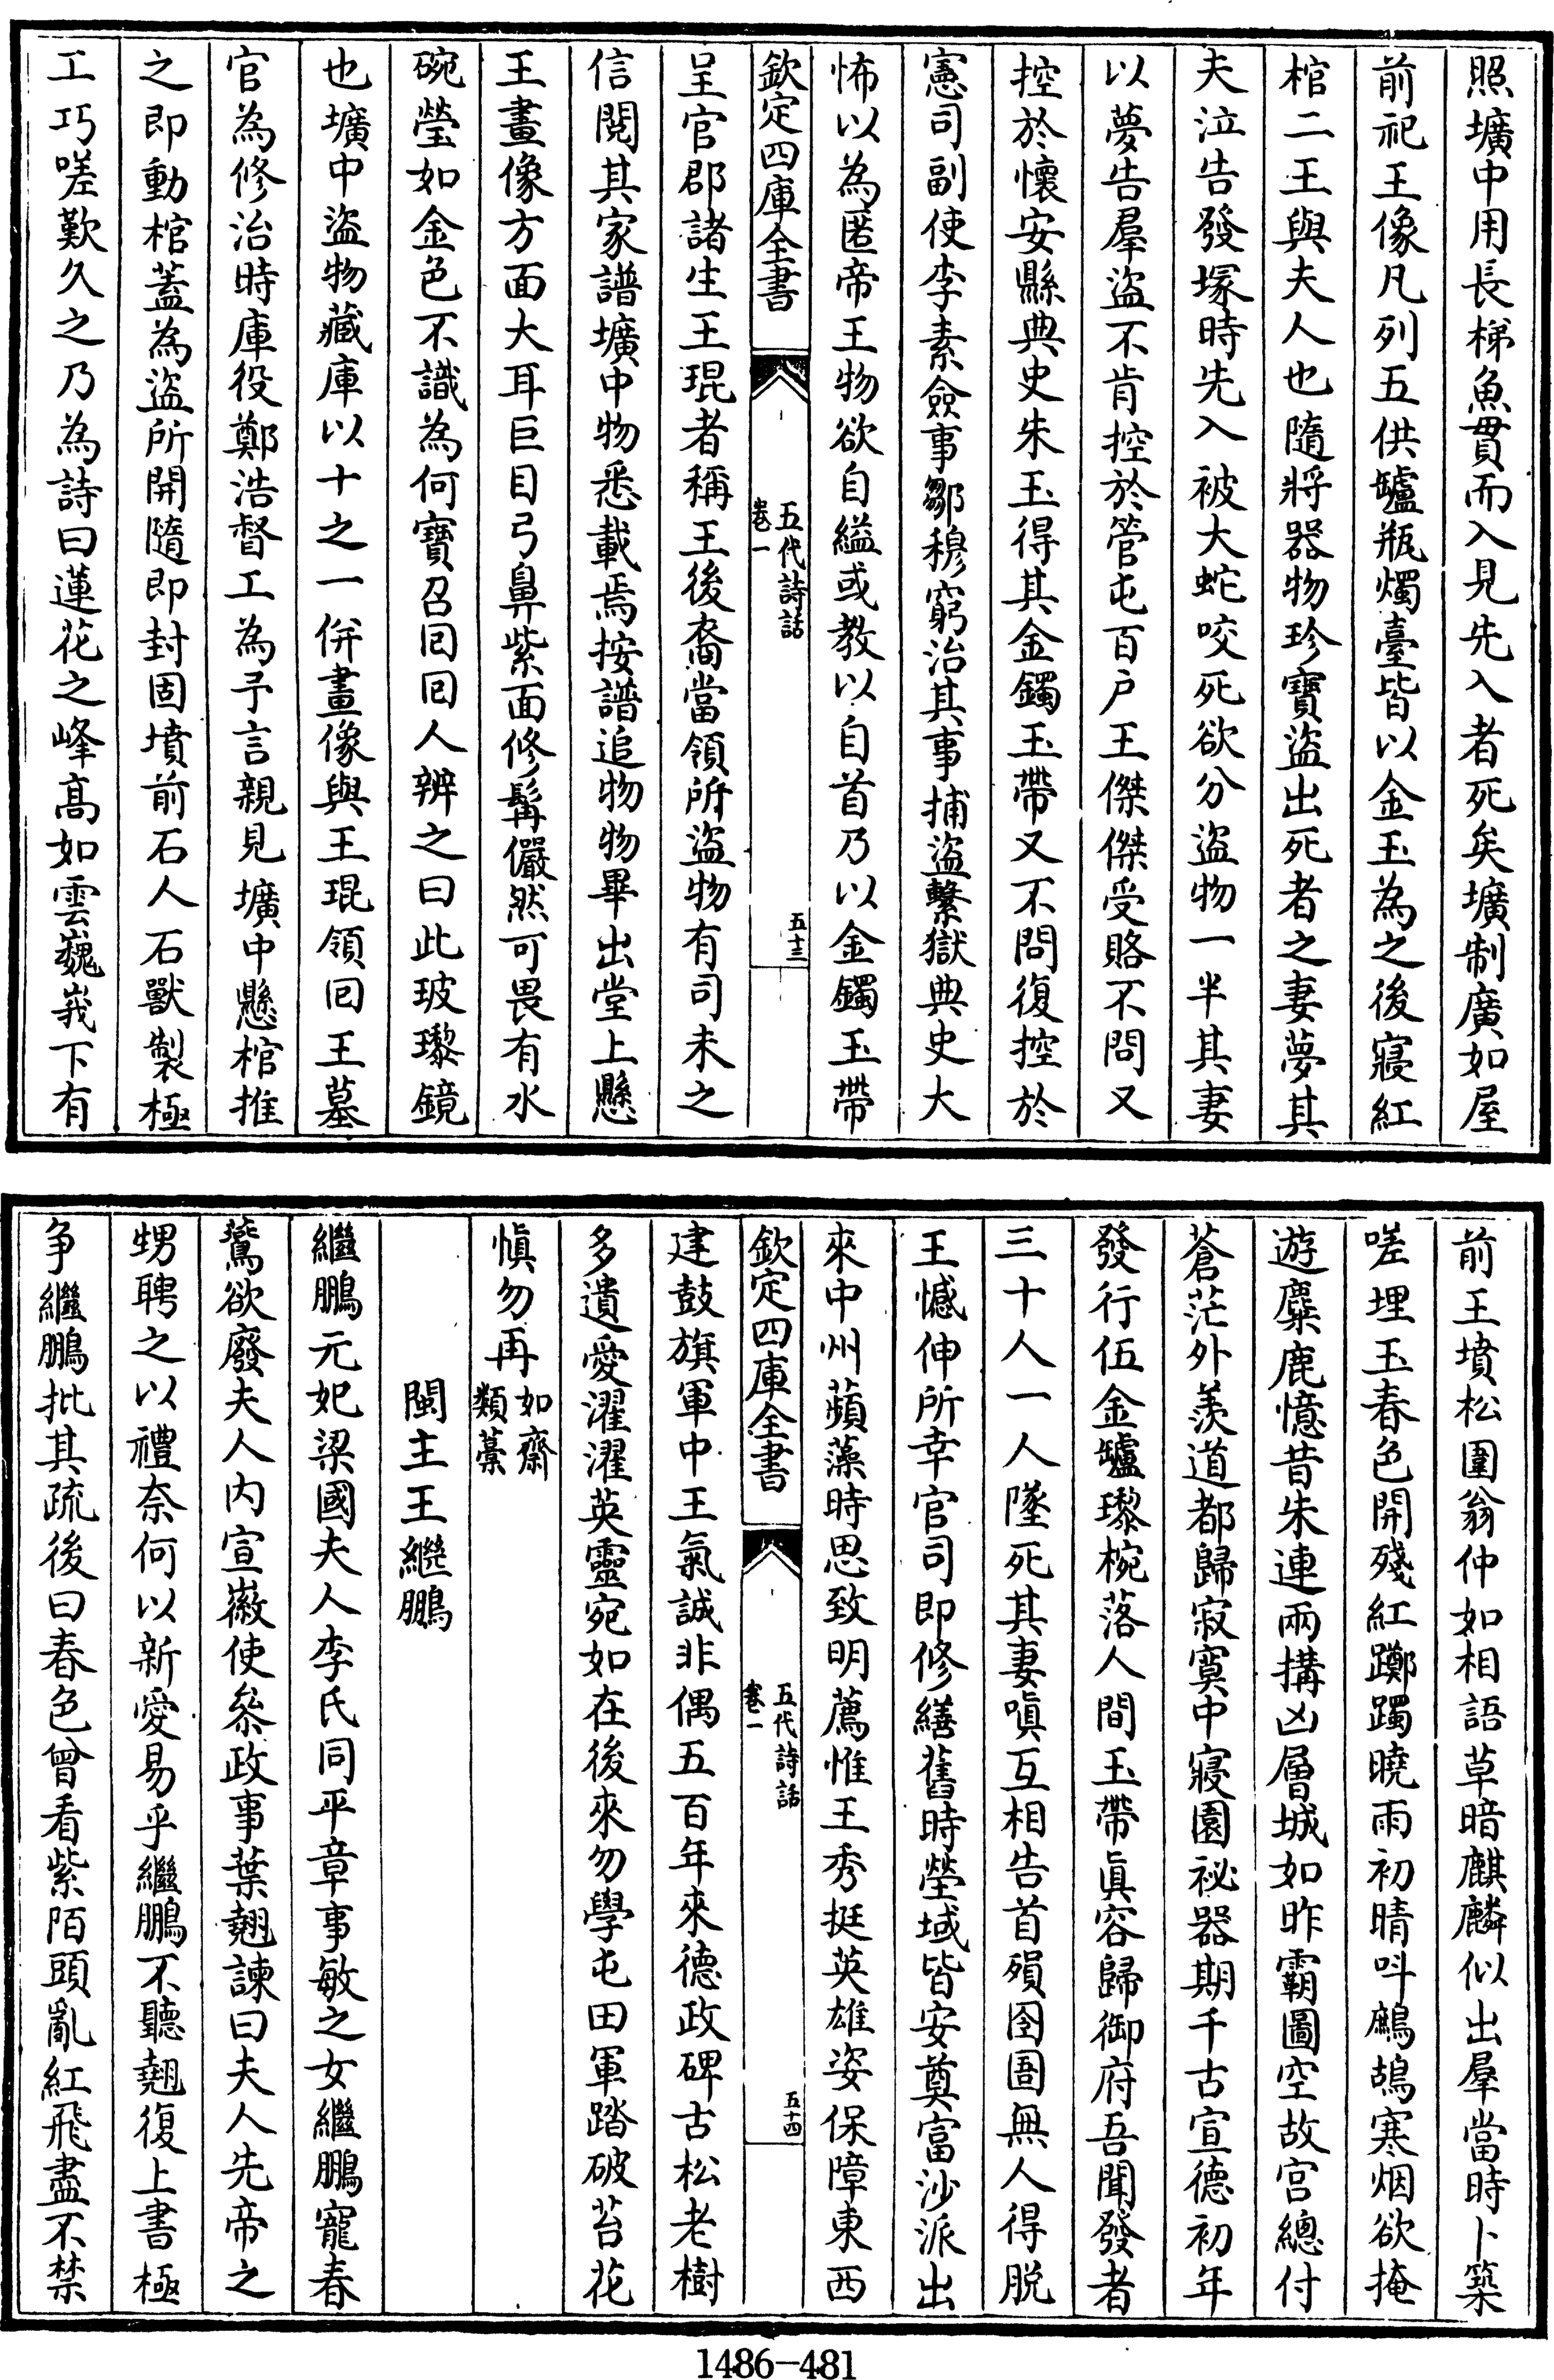 照壙中用長梯魚貫而入見先入者死矣壙制廣如屋
前祀王像凡列五供罏瓶燭臺皆以金玉為之後寢紅
棺二王與夫人也隨將器物珍寶盜出死者之妻夢其
夫泣告發塚時先入被大蛇咬死欲分盜物一半其妻
以夢告羣盜不肯控於管屯百户王傑傑受賂不問又
控於懷安縣典史朱玉得其金鐲玉帶又不問復控於
憲司副使李素僉事鄒穆窮治其事捕盜繫獄典史大
怖以為匿帝王物欲自縊或教以自首乃以金鐲玉帶
欽定四庫全書
五代詩話
卷一
五十三
呈官郡諸生王琨者稱王後裔當領所盜物有司未之
信閱其家譜壙中物悉載焉按譜追物物畢出堂上懸
王畫像方面大耳巨目弓鼻紫面修髯儼然可畏有水
碗瑩如金色不識為何寶召囘囘人辨之曰此玻瓈鏡
也壙中盜物藏庫以十之一併畫像與王琨領囘王墓
官為修治時庫役鄭浩督工為予言親見壙中懸棺推
之即動棺蓋為盜所開隨即封固墳前石人石獸製極
工巧嗟歎久之乃為詩曰蓮花之峰髙如雲巍峩下有
前王墳松圍翁仲如相語草暗麒麟似出羣當時卜築
嗟埋玉春色開殘紅躑躅曉雨初晴呌鷓鴣寒烟欲掩
遊麋鹿憶昔朱連兩搆凶層城如昨霸圖空故宫總付
蒼茫外羨道都歸寂寞中寢園祕器期千古宣德初年
發行伍金罏瓈椀落人間玉帶眞容歸御府吾聞發者
三十人一人墜死其妻嗔互相告首殞囹圄無人得脱
王憾伸所幸官司即修繕舊時塋域皆安奠富沙派出
來中州蘋藻時思致明薦惟王秀挺英雄姿保障東西
欽定四庫全書
五代詩話
卷一
五十四
建鼓旗軍中王氣誠非偶五百年來德政碑古松老樹
多遺愛濯濯英靈宛如在後來勿學屯田軍踏破苔花
愼勿再如齋類藁
閩主王繼鵬
繼鵬元妃梁國夫人李氏同平章事敏之女繼鵬寵春
鷰欲廢夫人内宣徽使叅政事葉翹諫曰夫人先帝之
甥聘之以禮奈何以新愛易乎繼鵬不聽翹復上書極
争繼鵬批其疏後曰春色曾看紫陌頭亂紅飛盡不禁
1486-481